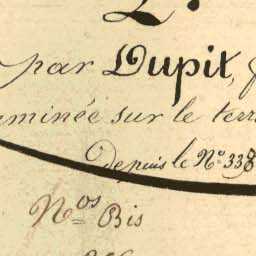 par Dupit,
minée sur le terr
Depuis le N° 338
N.os Bis